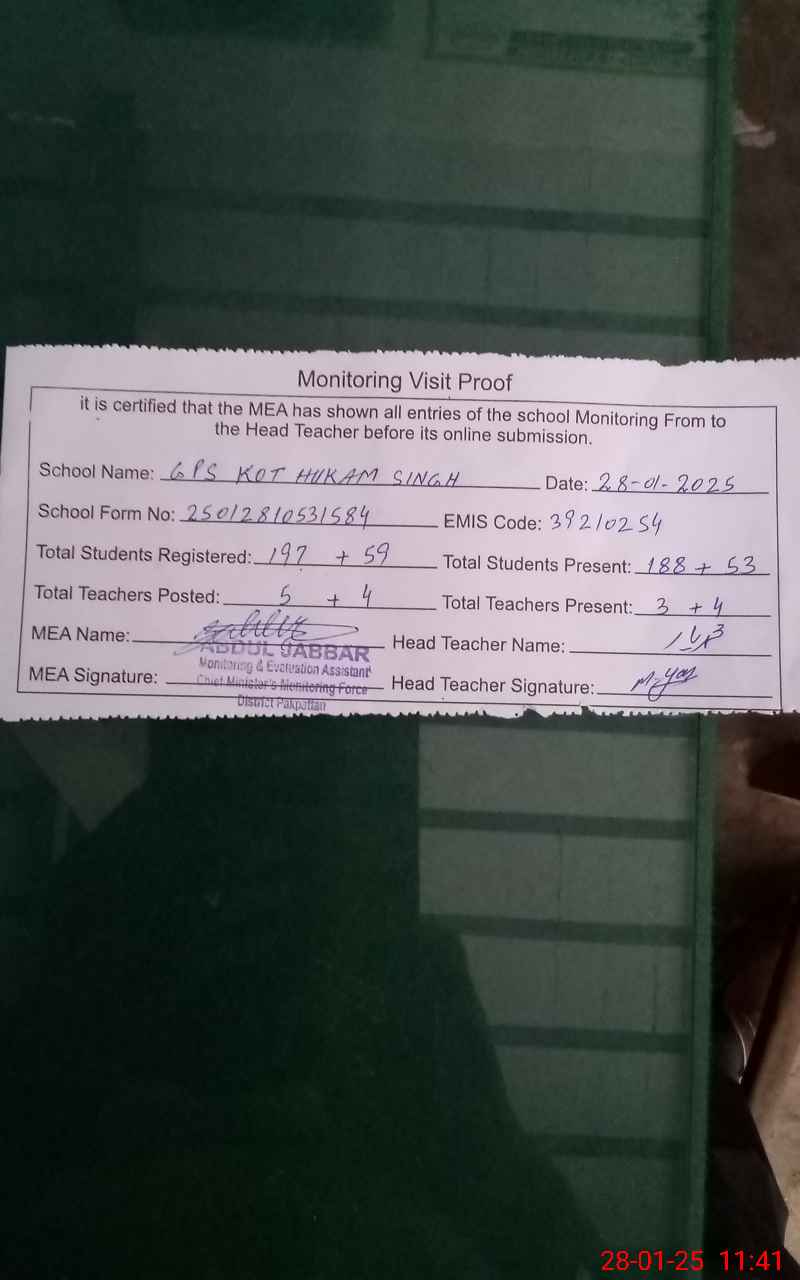 Monitoring Visit Proof
it is certified that the MEA has shown all entries of the school Monitoring From to
the Head Teacher before its online submission.
School Name: GPS KOT HUKAM SINGH Date: 28-01-2025
School Form No: 25012810531584 EMIS Code: 39210254
Total Students Registered: 197 + 59 Total Students Present: 188 + 53
Total Teachers Posted: 5 + 4 Total Teachers Present: 3 + 4
MEA Name: Head Teacher Name:
ABDUL JABBAR
Monitoring & Evaluation Assistant
MEA Signature: Chief Minister's Monitoring Force Head Teacher Signature:
District Pakpattan
28-01-25 11:41